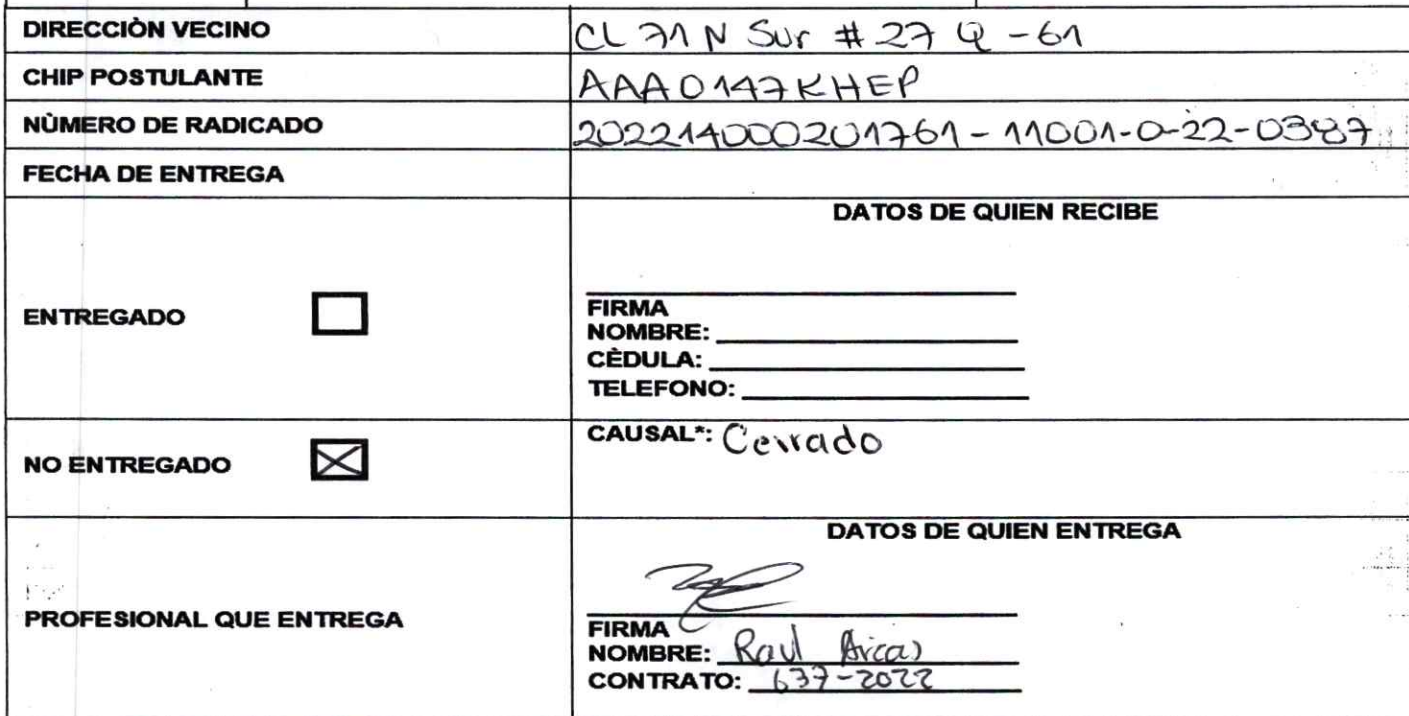 DIRECCIÒN VECINO CL 71 N Sur # 27 Q - 61
CHIP POSTULANTE AAA0147KHEP
NÙMERO DE RADICADO 202214000201761 - 11001-0-22-0387
FECHA DE ENTREGA
DATOS DE QUIEN RECIBE
ENTREGADO
FIRMA
NOMBRE:
CÈDULA:
TELEFONO:
NO ENTREGADO
CAUSAL*: Cerrado
DATOS DE QUIEN ENTREGA
PROFESIONAL QUE ENTREGA
FIRMA
NOMBRE: Raul
CONTRATO: 637-2022